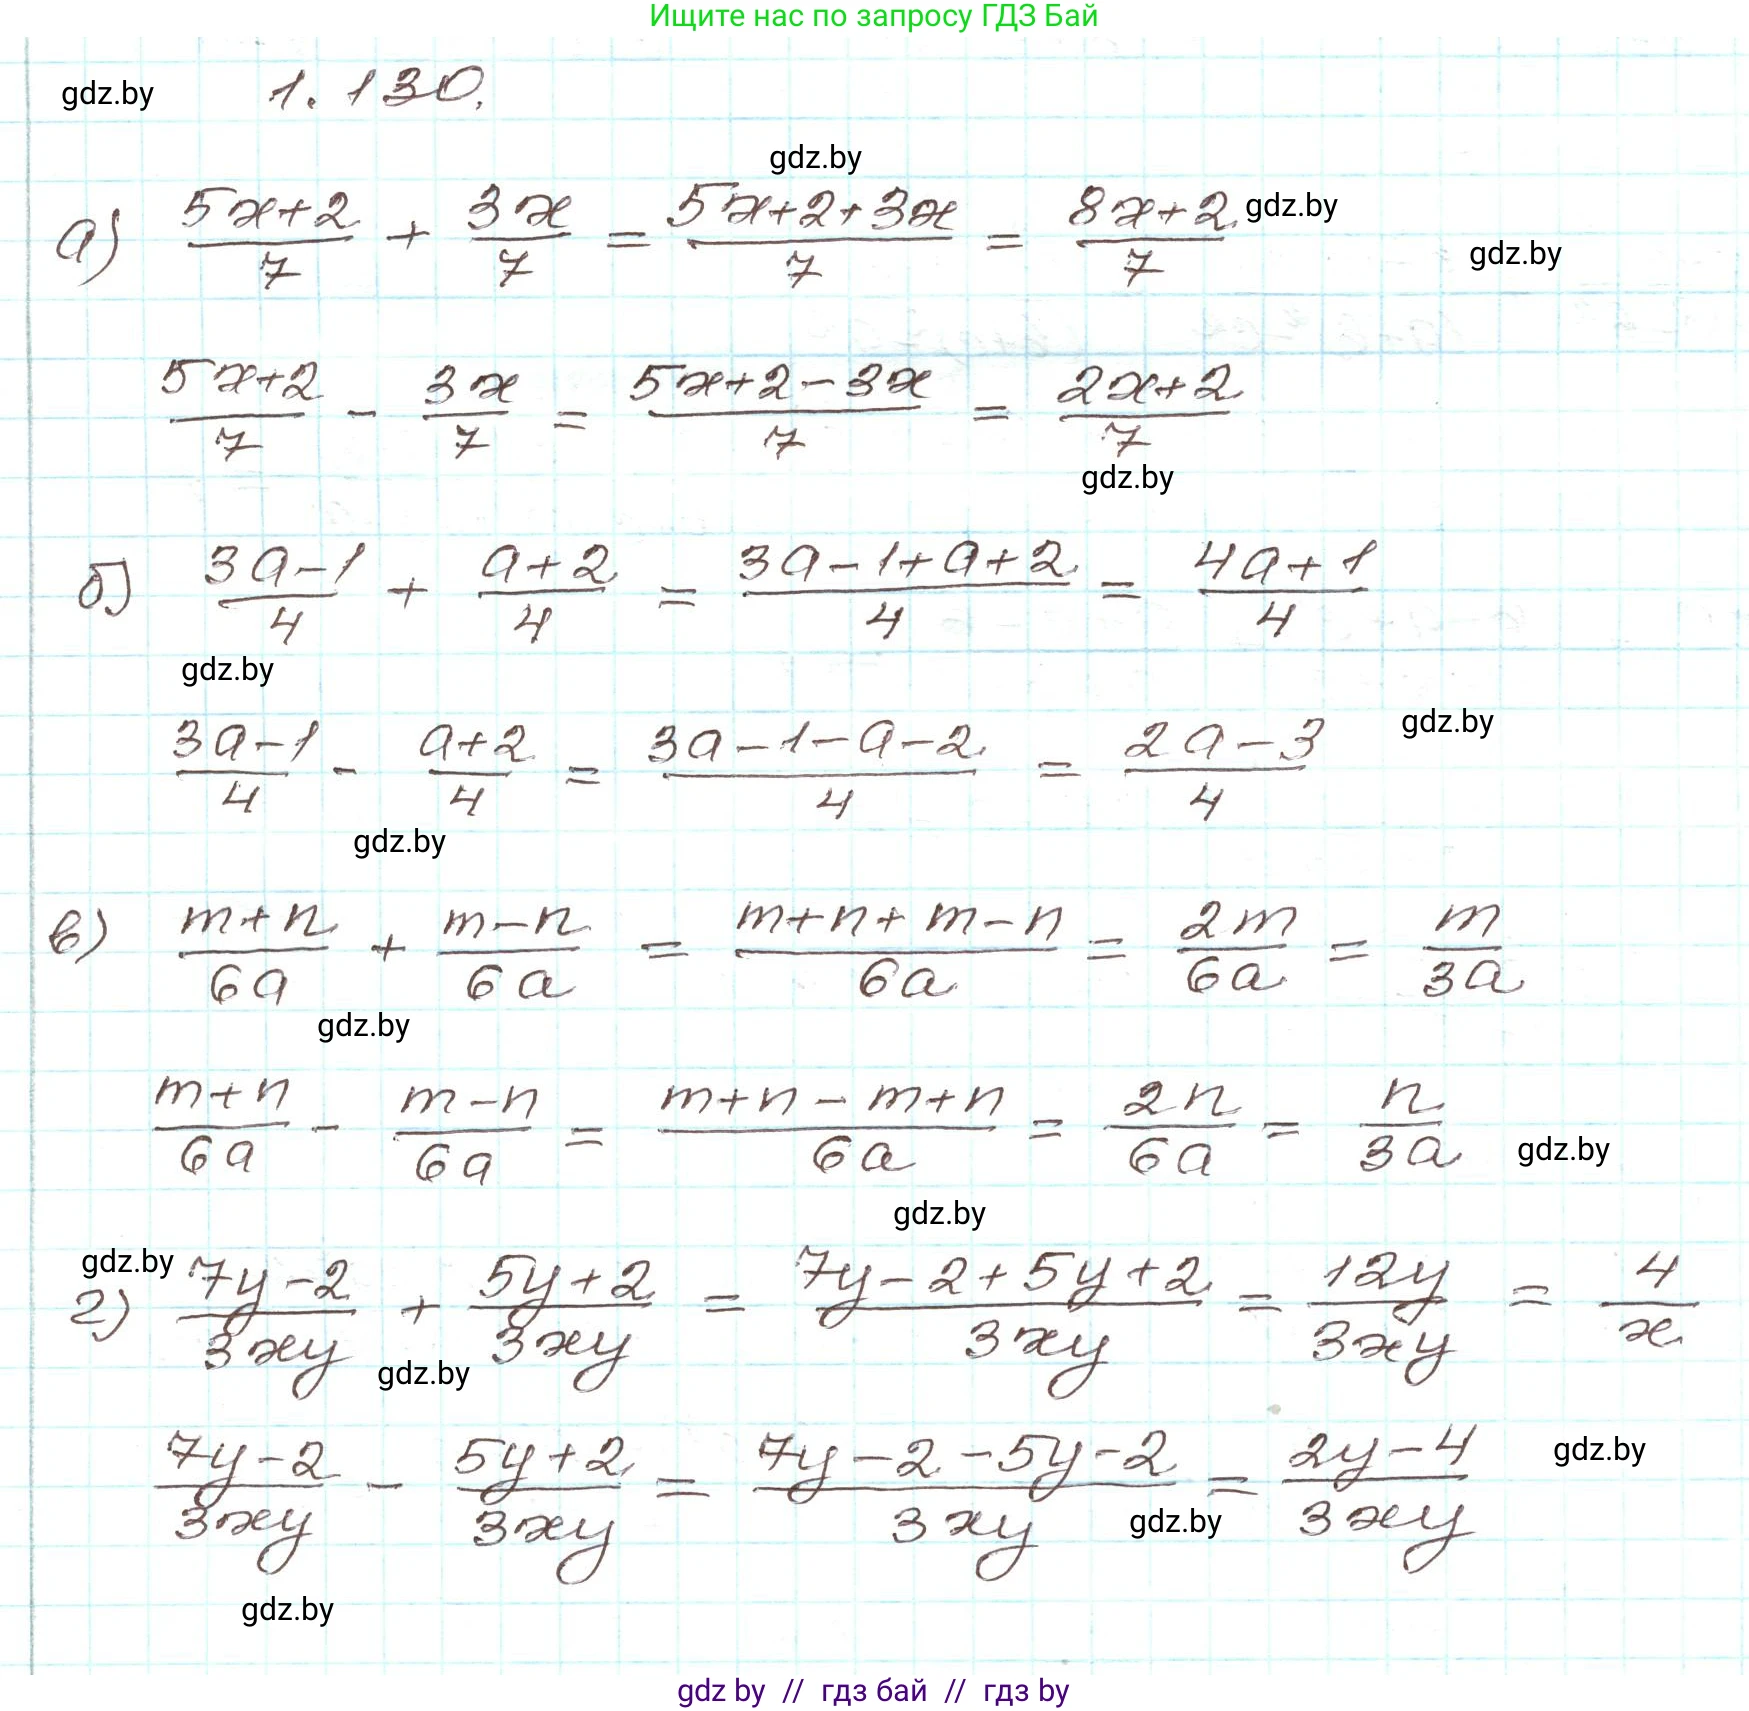 Ищите нас по запросу ГДЗ Бай
gdz.by 1.130.
gdz.by
а) (5x+2)/7 + 3x/7 = (5x+2+3x)/7 = (8x+2)/7 gdz.by
gdz.by
(5x+2)/7 - 3x/7 = (5x+2-3x)/7 = (2x+2)/7
gdz.by
б) (3a-1)/4 + (a+2)/4 = (3a-1+a+2)/4 = (4a+1)/4
gdz.by
gdz.by
(3a-1)/4 - (a+2)/4 = (3a-1-a-2)/4 = (2a-3)/4
gdz.by
в) (m+n)/6a + (m-n)/6a = (m+n+m-n)/6a = 2m/6a = m/3a
gdz.by
(m+n)/6a - (m-n)/6a = (m+n-m+n)/6a = 2n/6a = n/3a gdz.by
gdz.by
gdz.by
г) (7y-2)/3xy + (5y+2)/3xy = (7y-2+5y+2)/3xy = 12y/3xy = 4/x
gdz.by
(7y-2)/3xy - (5y+2)/3xy = (7y-2-5y-2)/3xy = (2y-4)/3xy gdz.by
gdz.by
gdz.by
gdz by // гдз бай // гдз by